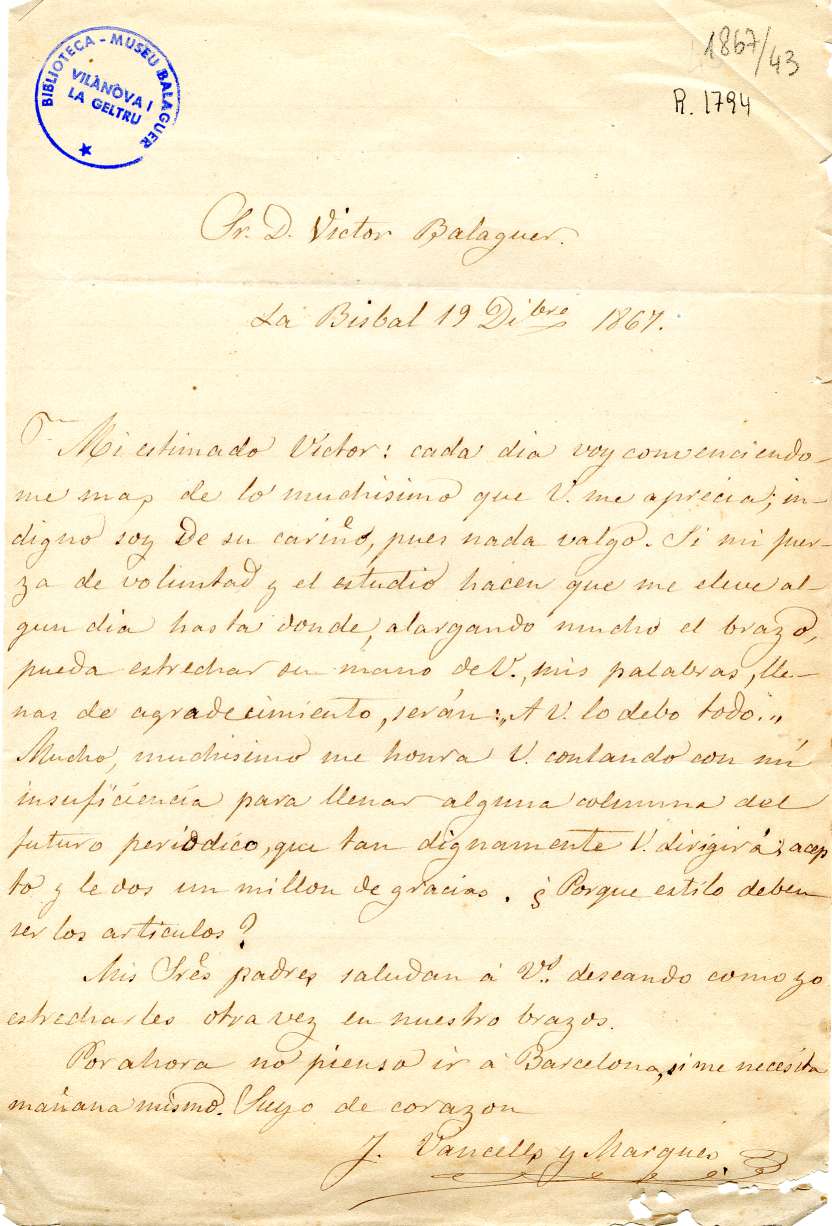 BIBLIOTECA - MUSEU BALAGUER
VILANOVA I
LA GELTRU
1867/43
R. 1794
Sr. D. Victor Balaguer.
La Bisbal 19 Dibre 1867.
Mi estimado Victor: cada dia voy convenciendo-
me mas de lo muchisimo que V. me aprecia; in-
digno soy de su cariño, pues nada valgo. Si mi fuer-
za de voluntad y el estudio hacen que me eleve al-
gun dia hasta donde, alargando mucho el brazo,
pueda estrechar su mano de V., mis palabras, lle-
nas de agradecimiento, serán: „A V. lo debo todo.„
Mucho, muchisimo me honra V. contando con mi
insuficiencia para llenar alguna columna del
futuro periódico, que tan dignamente V. dirigirá; acep
to y le dos un millon de gracias. ¿Porque estilo deben
ser los articulos?
Mis Sres padres saludan á Vs. deseando como yo
estrecharles otra vez en nuestro brazos.
Por ahora no pienso ir á Barcelona, si me necesita
mañana mismo. Suyo de corazon
J. Vancells y Marqués